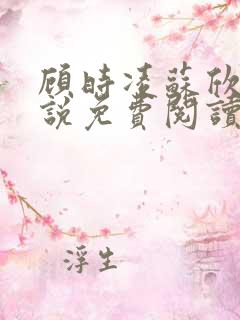 顾時凌蘇欣
說免費閱讀
浮生